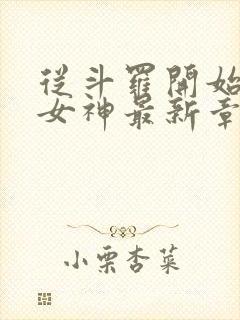 從斗羅開始
女神最新章
小栗杏菜